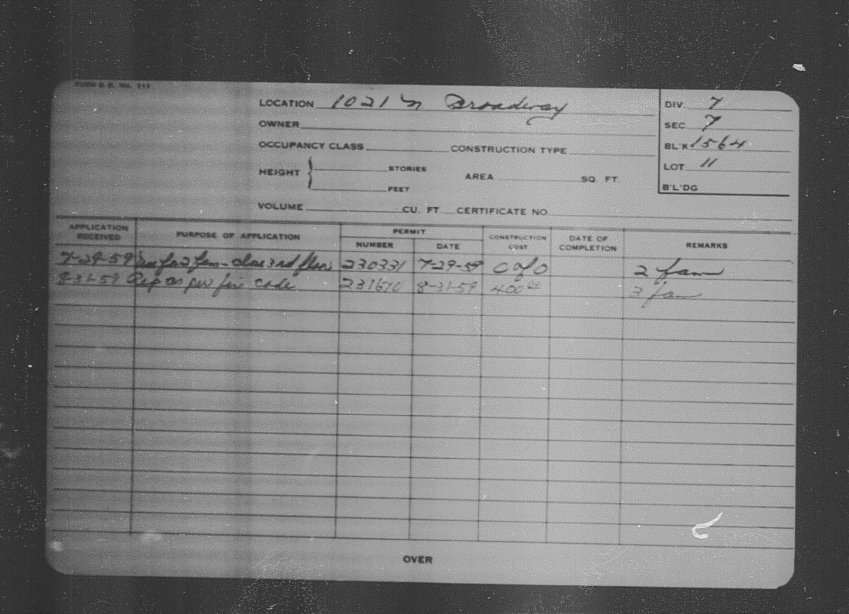 FORM B.B. No. 117
LOCATION 1021 N Broadway
DIV. 7
OWNER
SEC 7
OCCUPANCY CLASS CONSTRUCTION TYPE
BL'K 1564
HEIGHT STORIES FEET AREA SQ. FT.
LOT 11
B'L'DG
VOLUME CU. FT. CERTIFICATE NO.
APPLICATION RECEIVED PURPOSE OF APPLICATION PERMIT NUMBER DATE CONSTRUCTION COST DATE OF COMPLETION REMARKS
7-29-59 use for 2 fam - close 3rd floor 230331 7-29-59 C of O 2 fam
8-31-59 Rep as per fire code 231670 8-31-59 400 3 fam
OVER